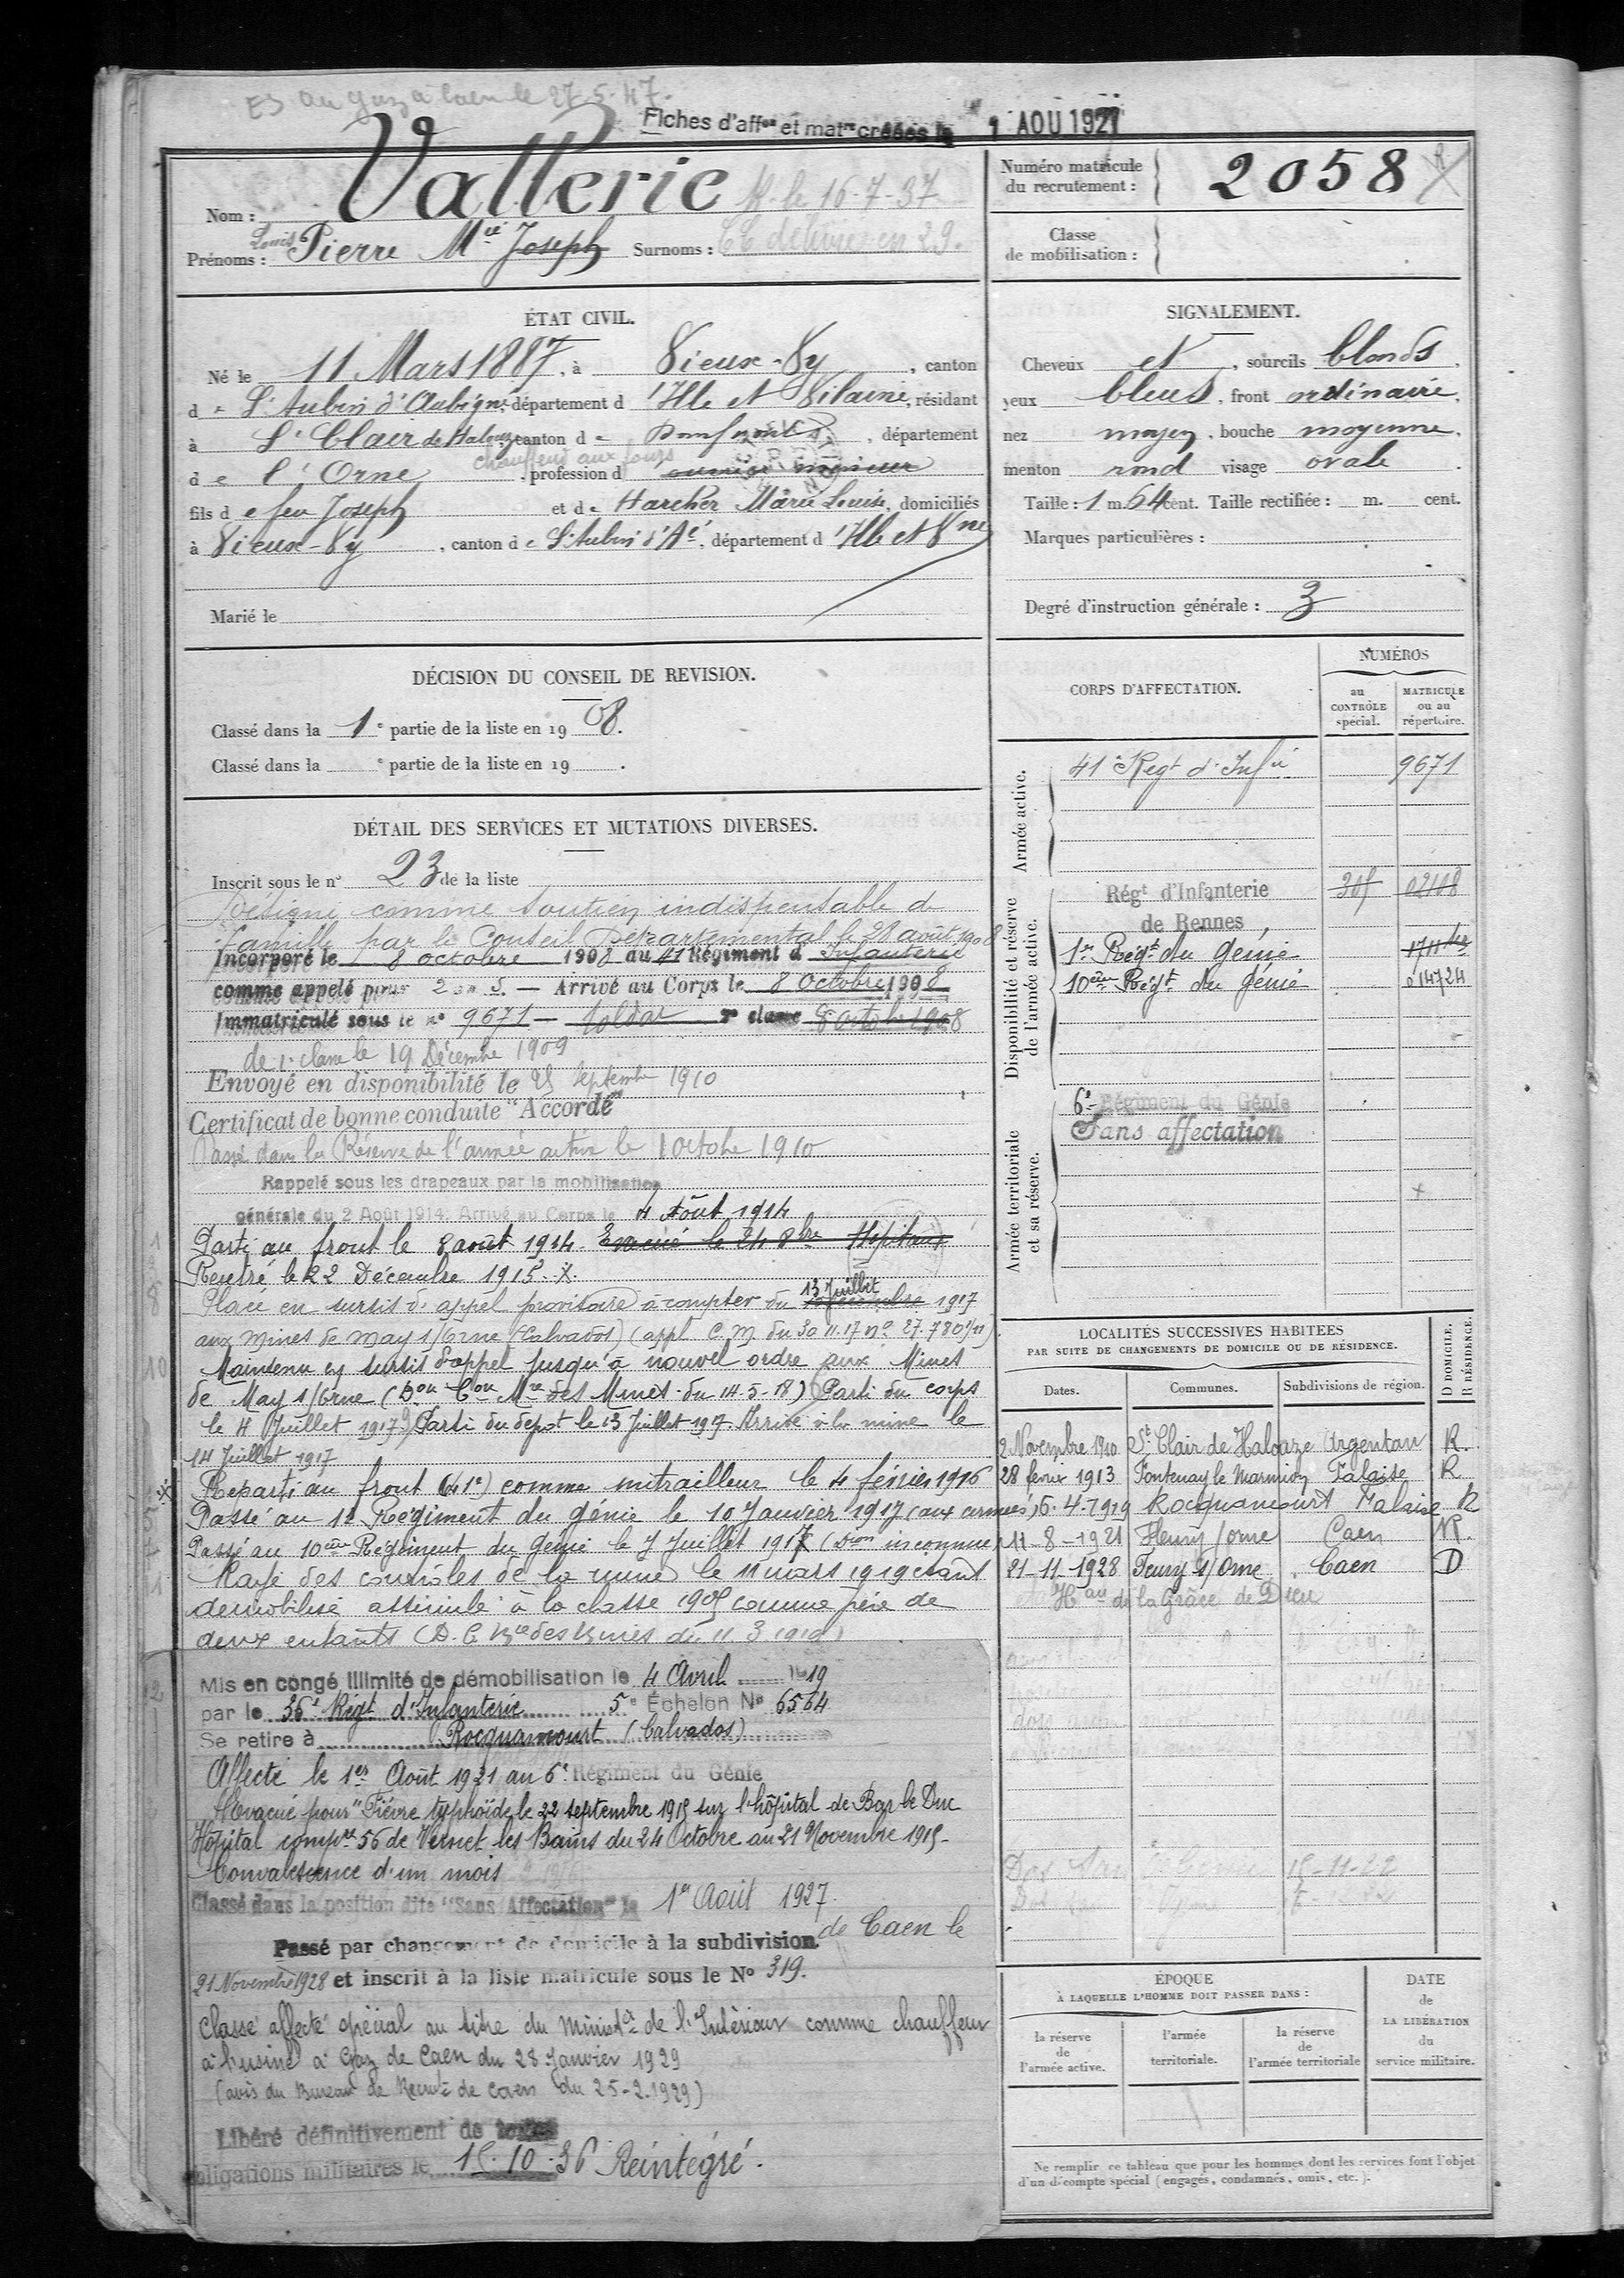 ES au gaz à Caen le 27-5-47.
Fiches d'affon et matre créées le 1 AOU 1927
Nom : Vallerie
R. le 16-7-37
Prénoms : Louis Pierre Mie Joseph Surnoms : en 29.
Numéro matricule
du recrutement : 2058
Classe
de mobilisation :
ÉTAT CIVIL.
Né le 11 Mars 1887, à Vieux-Vy, canton
de St Aubin d'Aubigné, département d'Ille et Vilaine, résidant
à St Clair de Halouze, canton de Domfront, département
de l'Orne, profession d ouvrier mineur
chauffeur aux fours
fils de feu Joseph et de Harcher Marie Louise, domiciliés
à Vieux-Vy, canton de St Aubin d'Aé, département d'Ille et Vne
Marié le
SIGNALEMENT.
Cheveux et, sourcils blonds,
yeux bleus, front ordinaire,
nez moyen, bouche moyenne,
menton rond visage ovale.
Taille : 1 m. 64 cent. Taille rectifiée : m. cent.
Marques particulières :
Degré d'instruction générale : 3
DÉCISION DU CONSEIL DE REVISION.
Classé dans la 1e partie de la liste en 1908.
Classé dans la e partie de la liste en 19 .
DÉTAIL DES SERVICES ET MUTATIONS DIVERSES.
Inscrit sous le no 23 de la liste
Désigné comme soutien indispensable de
famille par le Conseil Départemental le 28 août 1908
Incorporé le 8 octobre 1908 au 41 Régiment d'Infanterie
comme appelé pour 2 ans. — Arrivé au Corps le 8 Octobre 1908
Immatriculé sous le no 9671 — Soldat 2e classe 8 octobre 1908
de 1e classe le 19 Décembre 1909
Envoyé en disponibilité le 25 septembre 1910
Certificat de bonne conduite "Accordé"
Passé dans la Réserve de l'armée active le 1 octobre 1910
Rappelé sous les drapeaux par la mobilisation
générale du 2 Août 1914. Arrivé au Corps le 4 Août 1914
Parti au front le 8 août 1914. Evacué le 24 8bre Hôpitaux
Rentré le 22 Décembre 1915. X.
Placé en sursis d'appel provisoire à compter du 13 Juillet 1917
aux mines de May s/Orne (Calvados) (appl. C.M. du 30.11.17 no 27.780 1/11)
Maintenu en sursis d'appel jusqu'à nouvel ordre aux Mines
de May s/Orne (Don Con Mre des Mines du 14-5-18) Parti du corps
le 4 Juillet 1917 Parti du depot le 13 Juillet 1917. Arrivé à la mine le
14 Juillet 1917
X Reparti au front (41e) comme mitrailleur le 4 février 1916
Passé au 1er Régiment du génie le 10 Janvier 1917 (aux armées)
Passé au 10ème Régiment du Génie le 7 Juillet 1917 (Don inconnue)
Rayé des contrôles de la mine le 11 mars 1919 étant
démobilisé assimilé à la classe 1905 comme père de
deux enfants (D. C. Mre des Mines du 11.3.1919)
Mis en congé illimité de démobilisation le 4 Avril 1919
par le 36e Régt d'Infanterie 5e Échelon No 6564
Se retire à Rocquancourt (Calvados)
Affecté le 1er Août 1921 au 6e Régiment du Génie
Evacué pour "Fièvre typhoïde le 22 septembre 1915 sur l'hôpital de Bar le Duc
Hôpital compre 56 de Vernet les Bains du 24 Octobre au 21 Novembre 1915-
Convalescence d'un mois
Classé dans la position dite "Sans Affectation" le 1er Août 1927.
Passé par changement de domicile à la subdivision de Caen le
21 Novembre 1928 et inscrit à la liste matricule sous le No 319.
Classé affecté spécial au titre du Ministre de l'Intérieur comme chauffeur
à l'usine à Gaz de Caen du 28 Janvier 1929
(avis du Bureau de Recrut de Caen du 25-2-1929)
Libéré définitivement de toutes
obligations militaires le 15.10.36 Réintégré.
CORPS D'AFFECTATION.
NUMÉROS
au
CONTRÔLE
spécial.
MATRICULE
ou au
répertoire.
Armée active.
41e Regt d'Infie 9671
Disponibilité et réserve
de l'armée active.
Régt d'Infanterie 305 02108
de Rennes
1er Régt du Génie 1711 ter
10ème Régt du Génie 014724
Armée territoriale
et sa réserve.
6e Régiment du Génie
Sans affectation
LOCALITÉS SUCCESSIVES HABITÉES
PAR SUITE DE CHANGEMENTS DE DOMICILE OU DE RÉSIDENCE.
D DOMICILE.
R RÉSIDENCE.
Dates. Communes. Subdivisions de région.
2 Novembre 1910 St Clair de Halouze Argentan R.
28 février 1913 Fontenay le Marmion Falaise R
6-4-1919 Rocquancourt Falaise R
11-8-1921 Fleury s/Orne Caen R.
21-11-1928 Feury s/Orne Caen D
Hau de la Grâce de Dieu
15-11-22
ÉPOQUE
À LAQUELLE L'HOMME DOIT PASSER DANS :
la réserve
de
l'armée active.
l'armée
territoriale.
la réserve
de
l'armée territoriale
DATE
de
LA LIBÉRATION
du
service militaire.
Ne remplir ce tableau que pour les hommes dont les services font l'objet
d'un décompte spécial (engagés, condamnés, omis, etc.).